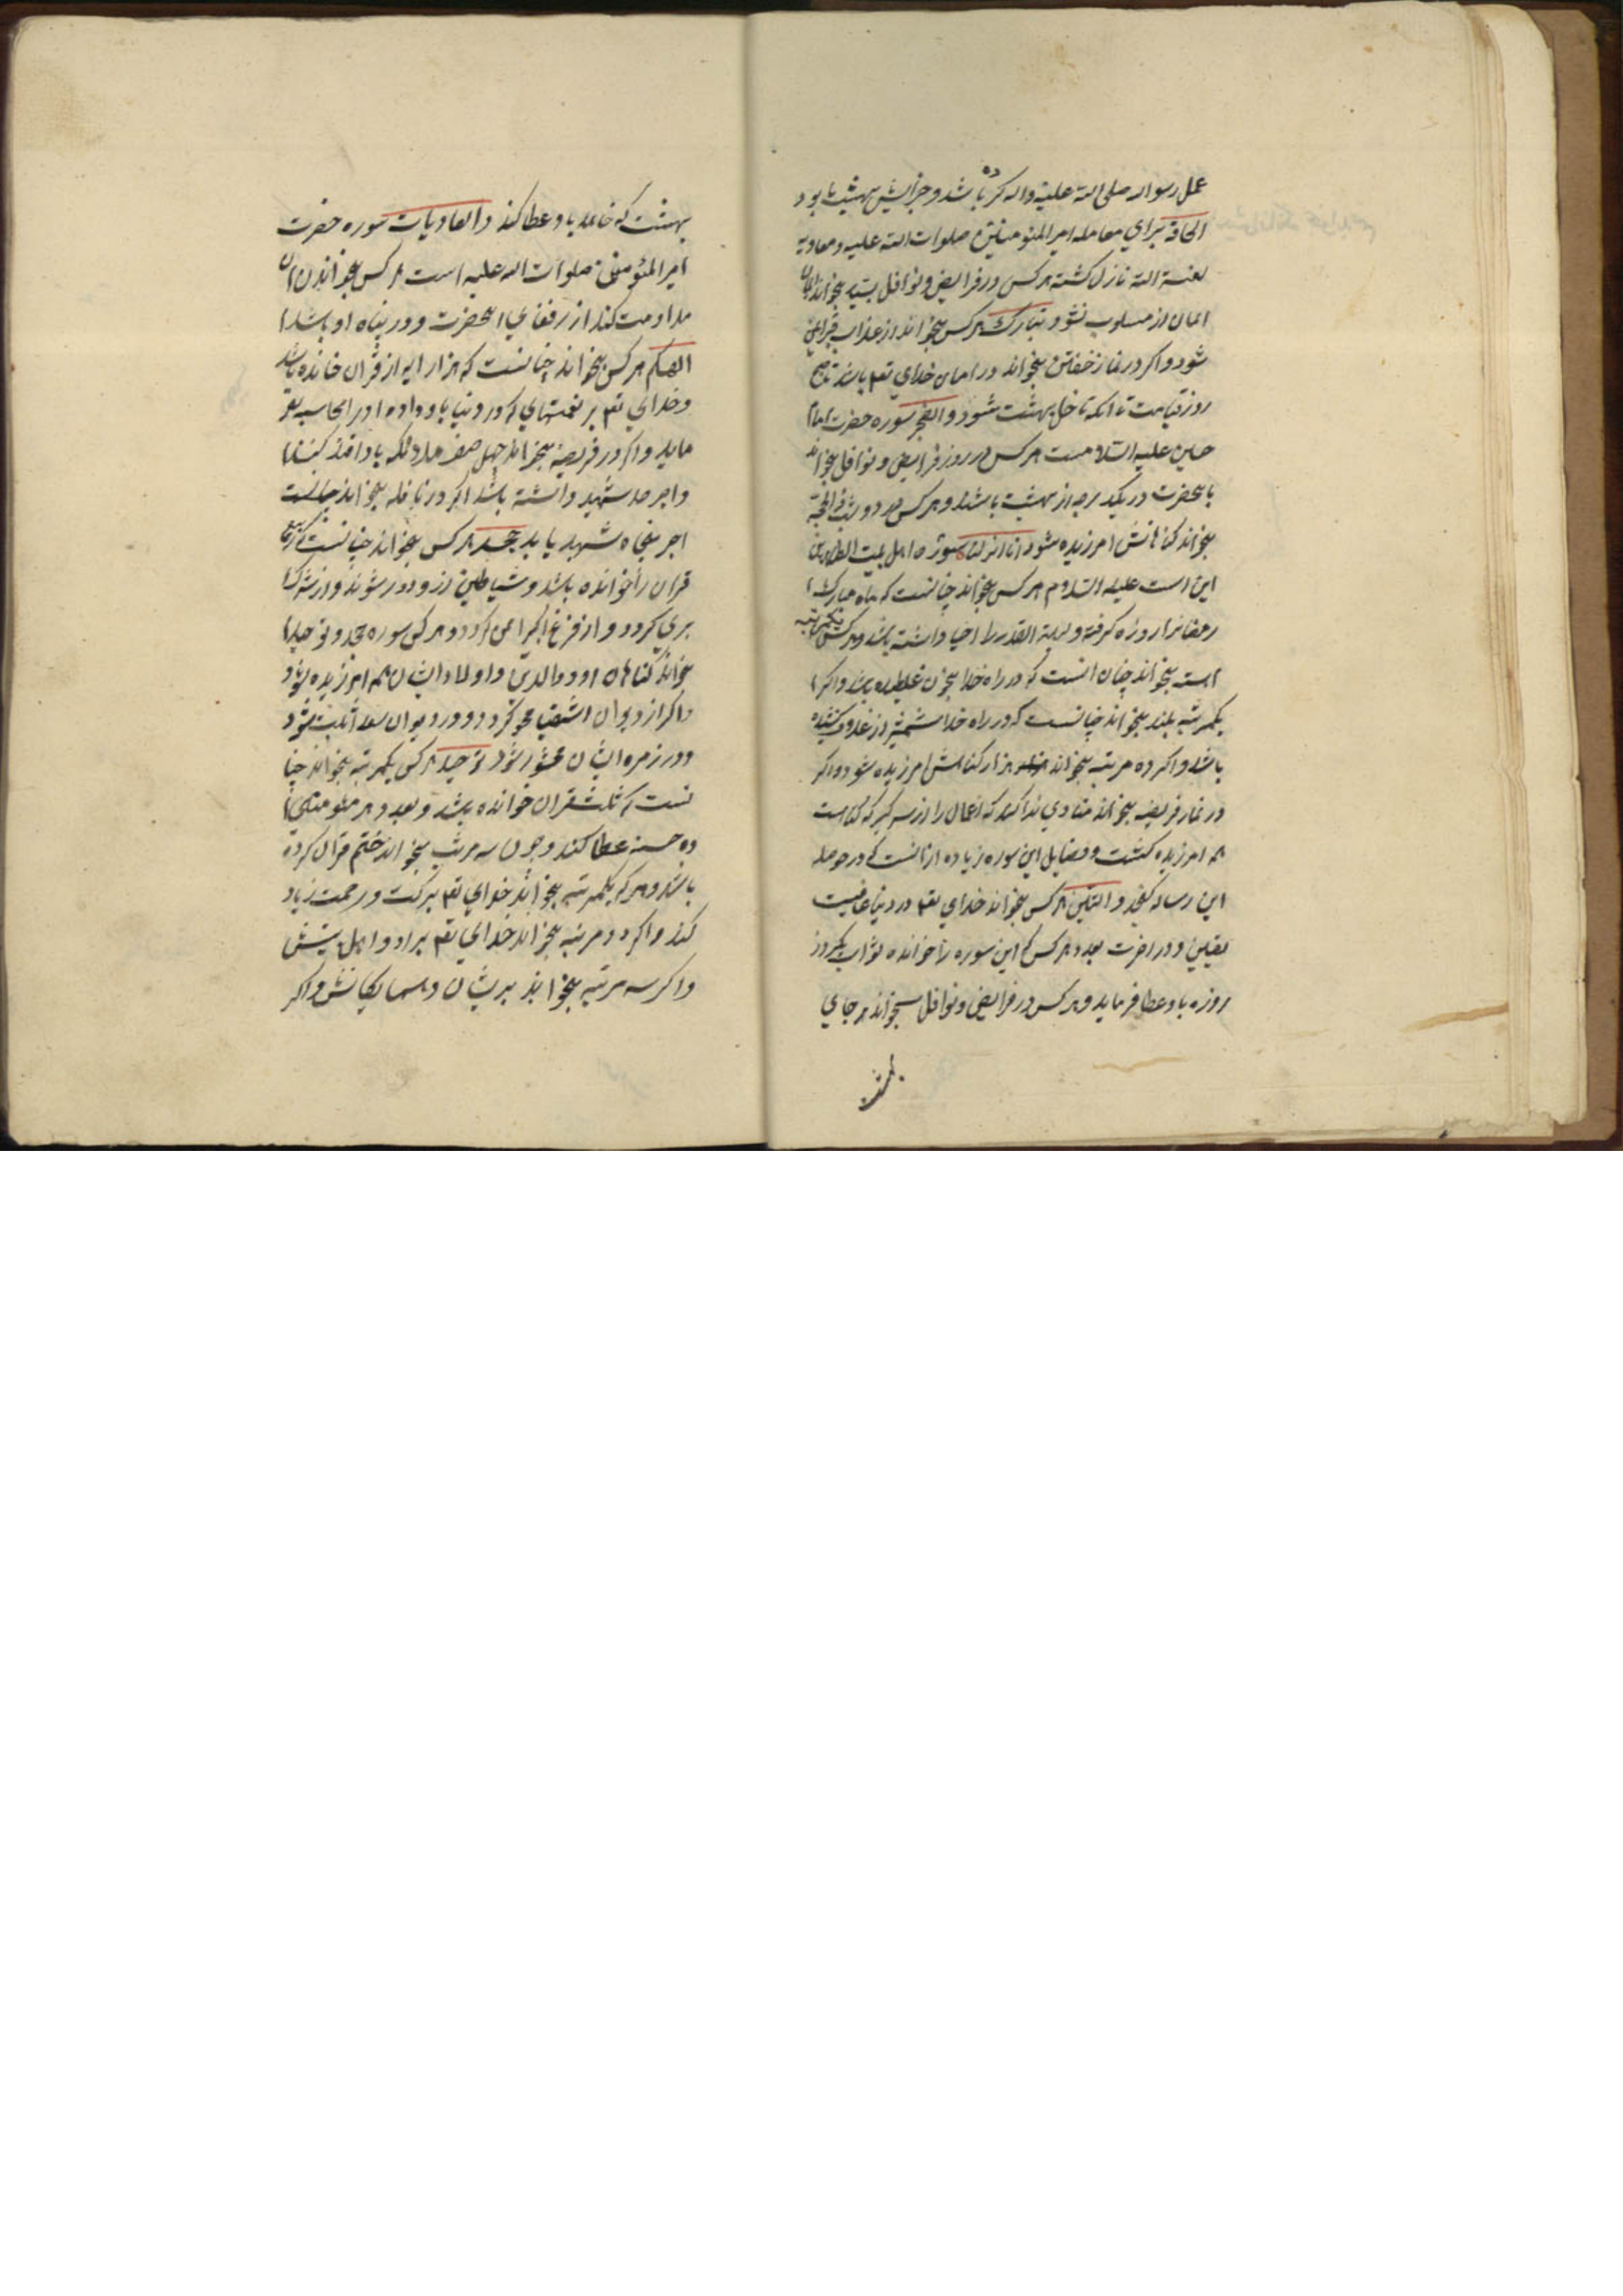 عمل رسول الله صلی الله علیه واله کرده باشد و جزایش بهشت بود
الحاقة برای معامله امیر المؤمنین صلوات الله علیه و معاویه
لعنة الله نازل کشته هر کس در فرایض و نوافل بسیار بخواند
ایمان از مسلوب نشود تبارک هر کس بخواند از عذاب قبر ایمن
شود و اکر در نماز خفتن بخواند در امان خدای تعم باشد تا صبح
روز قیامت تا انکه داخل بهشت شود و الفجر سوره حضرت امام
حسین علیه السلامست هر کس در روز فرایض و نوافل بخواند
بانحضرت در یکدرجه از بهشت باشد و هر کس در دو شب ذالحجة
بخواند کناهانش امرزیده شود انا انزلناه سوره اهل بیت الطاهرین
این است علیه السلام هر کس بخواند چنانست که ماه مبارک
رمضانرا روزه کرفته و لیلة القدر را احیا داشته باشد و هر کس یکمرتبه
اهسته بخواند چنان انست که در راه خدا بخون غلطیده باشد و اکر
یکمرتبه بلند بخواند چنانست که در راه خدا شمشیر از غلاف کشیده
باشد و اکر ده مرتبه بخواند هزار کناهش امرزیده شود و اکر
در نماز فریضه بخواند منادی ندا کند که اعمال را از سر کیر که کناهت
همه امرزیده کشت و فضایل این سوره زیاده از انست که در حوصله
این رساله کنجد و التین هر کس بخواند خدای تعم در دنیا عافیت
یقین و در اخرت بعدد هر کس که این سوره را خوانده ثواب یکروز
روزه باو عطا فرماید و هر کس در فرایض و نوافل بخواند هر جای
بهشت که خواهد باو عطا کند و العادیات سوره حضرت
امیر المؤمنین صلوات الله علیه است هر کس بخواندن ان
مداومت کند از رفقای انحضرت و در پناه او باشد
الهیکم هر کس بخواند چنانست که هزار ایه از قران خوانده باشد
و خدای تعم بر نعمتهای که در دنیا باو داده او را محاسبه نفر
ماید و اکر در فریضه بخواند چهل صف ملائکه باو اقتدا کنند
و اجر صد شهید داشته باشد اکر در نافله بخواند
اجر پنجاه شهید یابد جحد هر کس بخواند چنانست که ربع
قران را خوانده باشد و شیاطین از و دور شوند و از شرک
بری کردد و از فزع اکبر ایمن کردد و هر که سوره جحد و توحید
بخواند کناهان او و والدین و اولاد ایشان همه امرزیده شود
و اکر از دیوان اشقیا محو کردد و در دیوان سعدا ثبت شود
و در زمره ایشان محشور شود توحید هر کس یکمرتبه بخواند چنا
نست که ثلث قران خوانده باشد و بعدد هر مؤمنی
ده حسنه عطا کند و چون سه مرتبه بخواند ختم قران کرده
باشد و هر که یکمرتبه بخواند خدای تعم برکت و رحمت زیاد
کند و اکر دو مرتبه بخواند خدای تعم بر او و اهل بیتش
و اکر سه مرتبه بخواند بر ایشان و همسایکانش و اکر
بهشت